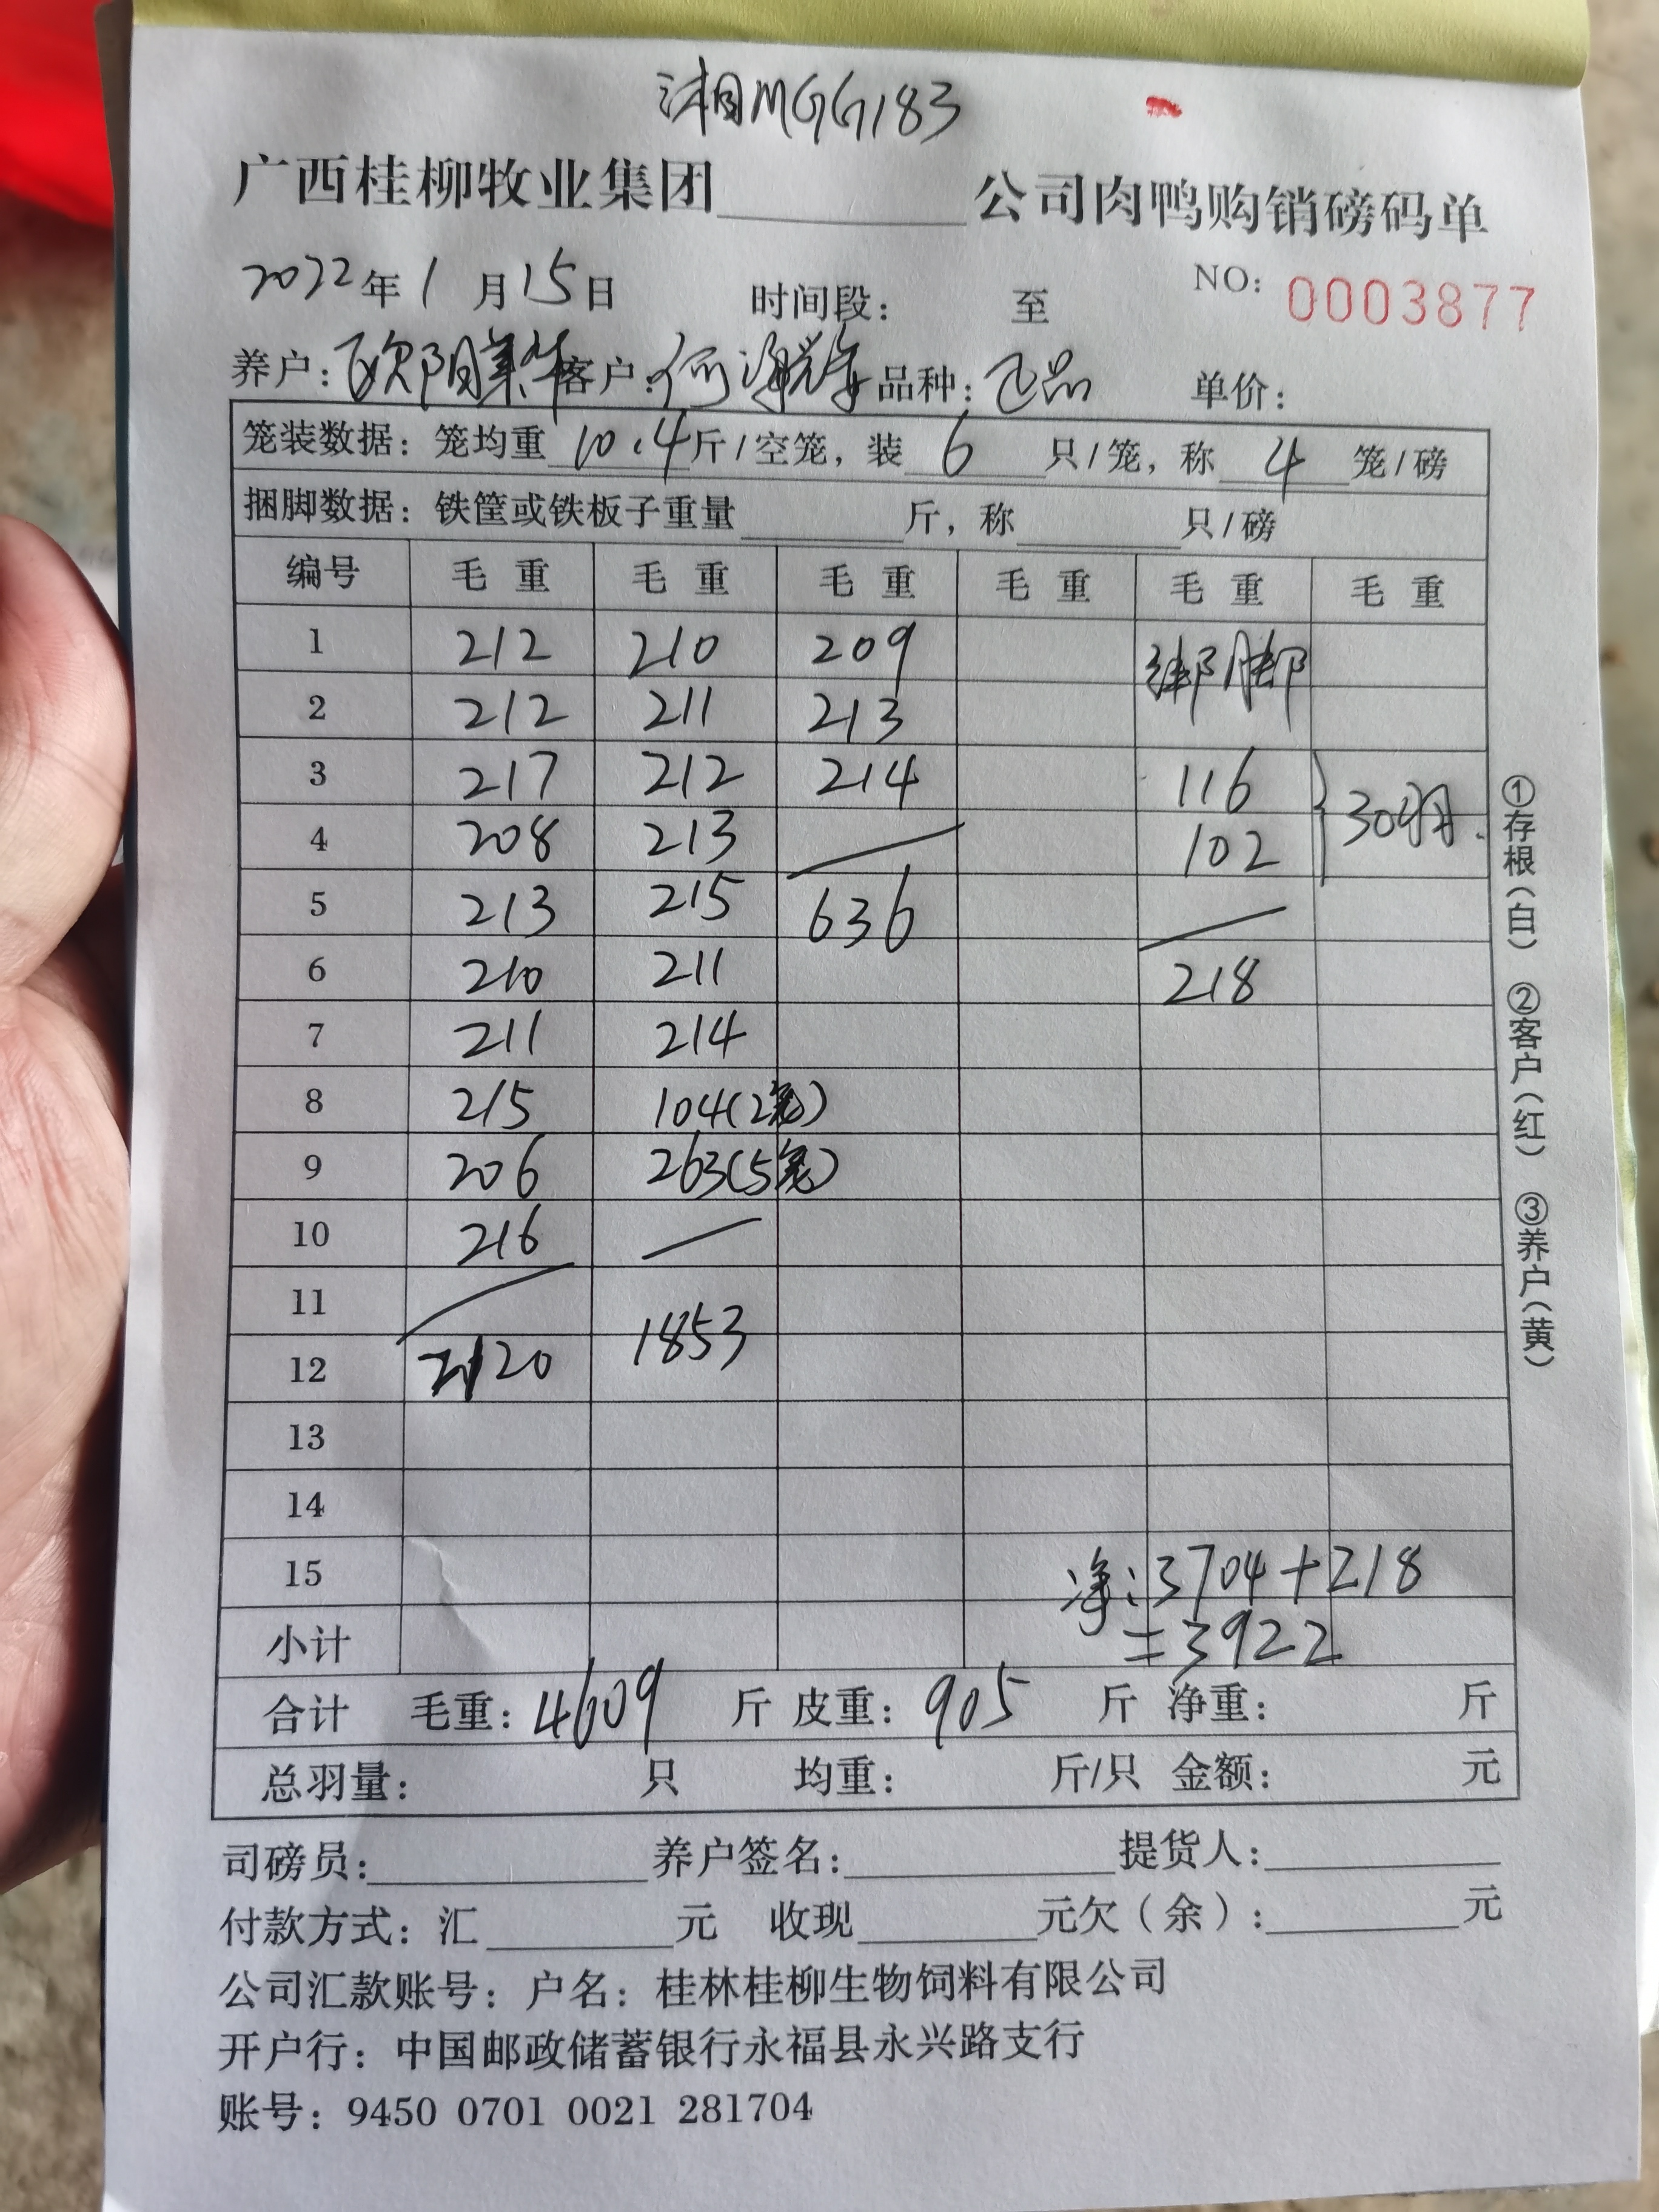 湘MGG183
广西桂柳牧业集团______公司肉鸭购销磅码单
2022年1月15日 时间段: 至 NO: 0003877
养户: 欧阳美华 客户: 何海 品种: 正品 单价:
笼装数据: 笼均重 10.4 斤/空笼, 装 6 只/笼, 称 4 笼/磅
捆脚数据: 铁筐或铁板子重量______斤, 称______只/磅
编号 毛重 毛重 毛重 毛重 毛重 毛重
1 212 210 209 绑脚
2 212 211 213
3 217 212 214 116
4 208 213 102 30羽.
5 213 215 636
6 210 211 218
7 211 214
8 215 104(2笼)
9 206 263(5笼)
10 216
11 1853
12 2120
13
14
15 净:3704+218
小计 =3922
合计 毛重: 4609 斤 皮重: 905 斤 净重: 斤
总羽量: 只 均重: 斤/只 金额: 元
司磅员:______养户签名:______提货人:______
付款方式: 汇______元 收现______元欠(余):______元
公司汇款账号: 户名: 桂林桂柳生物饲料有限公司
开户行: 中国邮政储蓄银行永福县永兴路支行
账号: 9450 0701 0021 281704
①存根(白) ②客户(红) ③养户(黄)